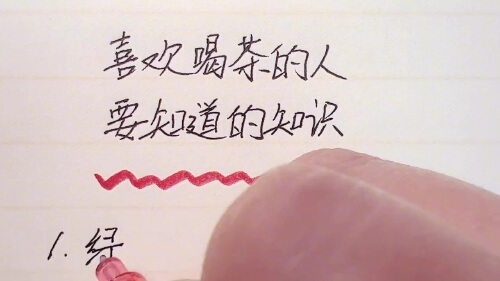 喜欢喝茶的人
要知道的知识
1. 绿